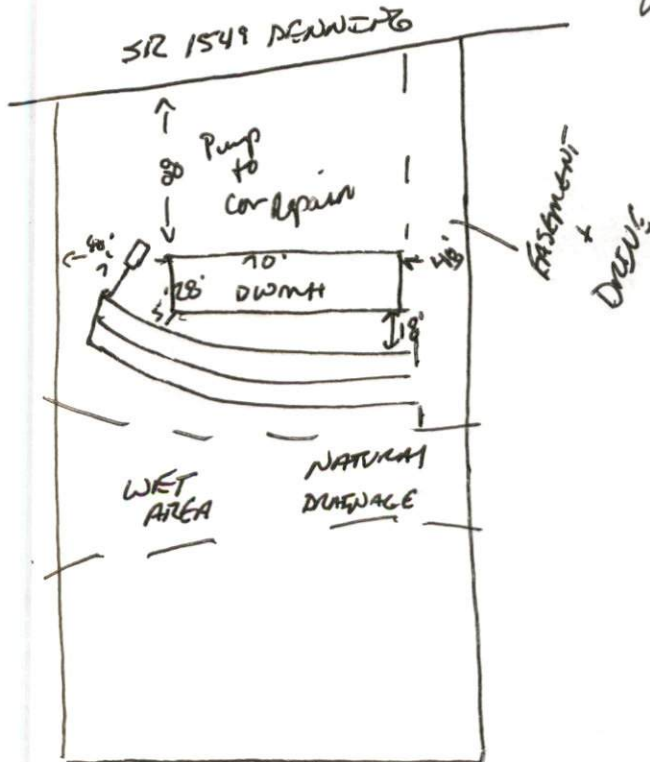 SR 1549 DENNING
80
Pump
to
Con Repair
EASEMENT
+
DRIVE
40'
70'
28' DWMH
48'
5'
18'
WET
AREA
NATURAL
DRAINAGE